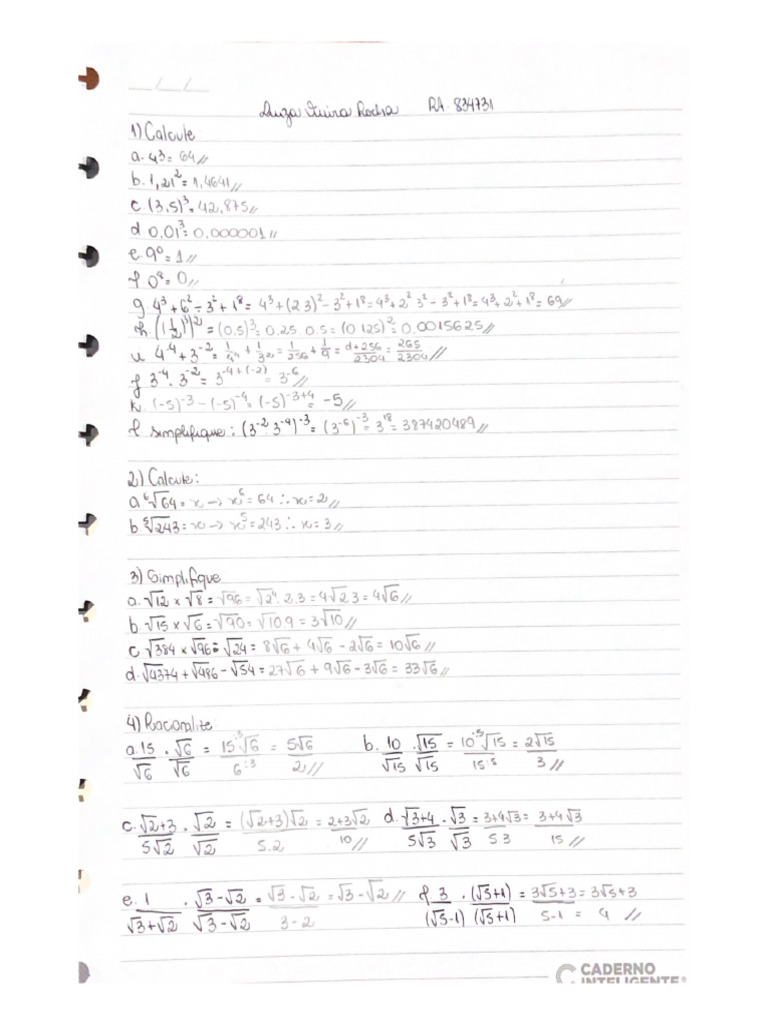 __/__/__
Rocha RA: 834731
1) Calcule
a. 4³ = 64 //
b. 1,21² = 1,4641 //
c. (3,5)³ = 42,875 //
d 0,01³ = 0,000001 //
e. 9⁰ = 1 //
f 0⁸ = 0 //
g 4³ + 6² ÷ 3² + 1⁸ = 4³ + (2 3)² ÷ 3² + 1⁸ = 4³ + 2² 3² ÷ 3² + 1⁸ = 4³ + 2² + 1⁸ = 69 //
h. ((1/2)³)² = (0,5)³ = 0,25 0,5 = (0 125)² = 0,0015625 //
i 4⁻⁴ + 3⁻² = 1/4⁴ + 1/3² = 1/256 + 1/9 = d+256/2304 = 265/2304 //
j 3⁻⁴ . 3⁻² = 3⁻⁴⁺⁽⁻²⁾ = 3⁻⁶ //
k. (-5)⁻³ ÷ (-5)⁻⁴ = (-5)⁻³⁺⁴ = -5 //
l simplifique: (3⁻² 3⁻⁴)⁻³ = (3⁻⁶)⁻³ = 3¹⁸ = 387420489 //
2) Calcule:
a ⁶√64 = x → x⁶ = 64 ∴ x = 2 //
b ⁵√243 = x → x⁵ = 243 ∴ x = 3 //
3) Simplifique
a. √12 × √8 = √96 = √2⁴ . 2 . 3 = 4√2 3 = 4√6 //
b. √15 × √6 = √90 = √10 9 = 3√10 //
c √384 × √96 = √24 = 8√6 + 4√6 - 2√6 = 10√6 //
d. √4374 + √486 - √54 = 27√6 + 9√6 - 3√6 = 33√6 //
4) Racionalize
a. 15/√6 . √6/√6 = 15:³√6/6:3 = 5√6/2 // b. 10/√15 . √15/√15 = 10:⁵√15/15:5 = 2√15/3 //
c. √2+3/5√2 . √2/√2 = (√2+3)√2/5.2 = 2+3√2/10 // d. √3+4/5√3 . √3/√3 = 3+4√3/5.3 = 3+4√3/15 //
e. 1/√3+√2 . √3-√2/√3-√2 = √3-√2/3-2 = √3-√2 // f. 3/(√5-1) . (√5+1)/(√5+1) = 3√5+3/5-1 = 3√5+3/4 //
CADERNO
INTELIGENTE®